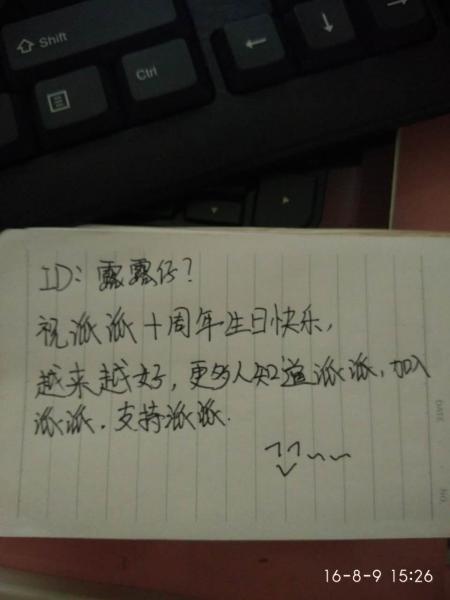 Shift
Ctrl
ID：露露仔？
祝派派十周年生日快乐，
越来越好，更多人知道派派，加入
派派．支持派派．
DATE
NO.
16-8-9 15:26